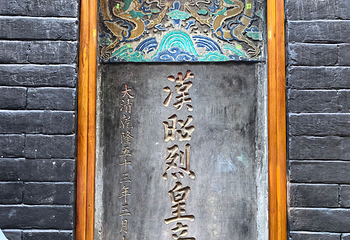 漢昭烈皇
大清乾隆五十三年二月